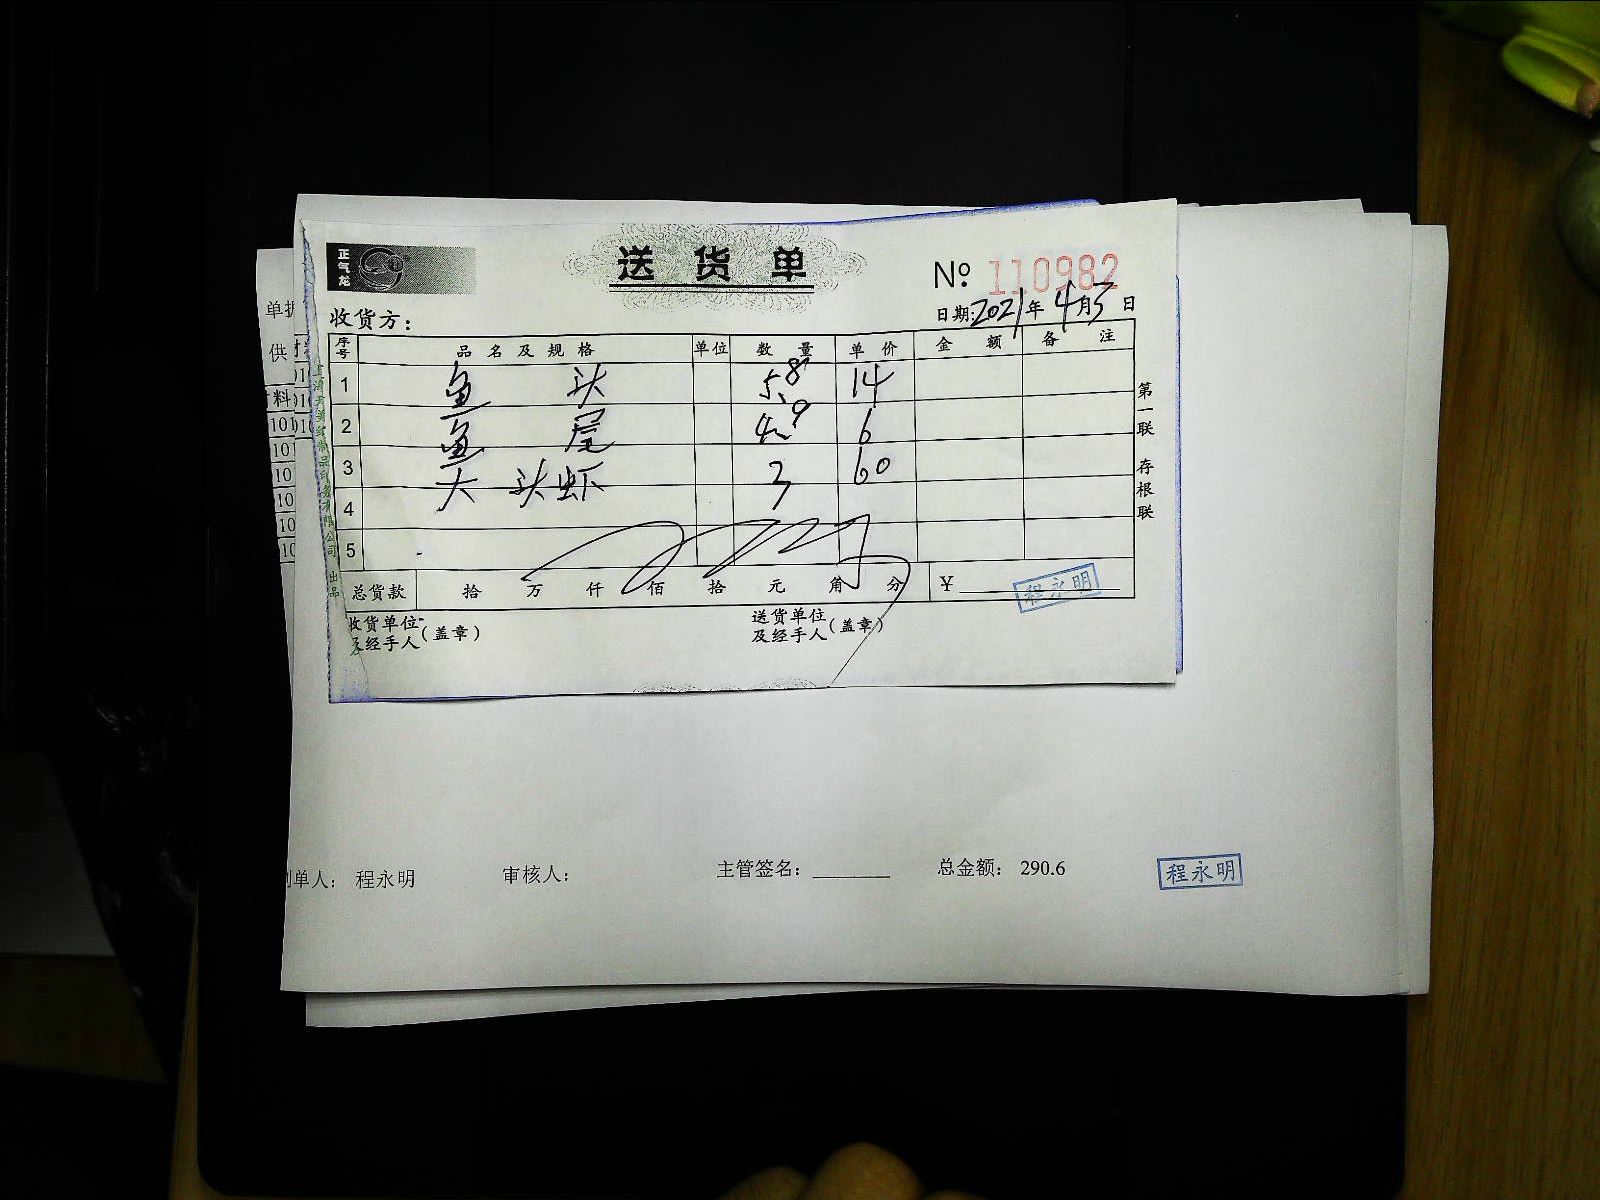 正气龙
送货单
№ 110982
收货方:
日期:2021年4月3日
序号 品名及规格 单位 数量 单价 金额 备注
1 鱼头 5.8 14
2 鱼尾 4.9 6
3 大头虾 3 60
4
5
总货款 拾 万 仟 佰 拾 元 角 分 ¥
程永明
收货单位及经手人(盖章)
送货单位及经手人(盖章)
第一联 存根联
单据
供
料
101
101
10
10
10
10
制单人: 程永明 审核人: 主管签名: 总金额: 290.6
程永明